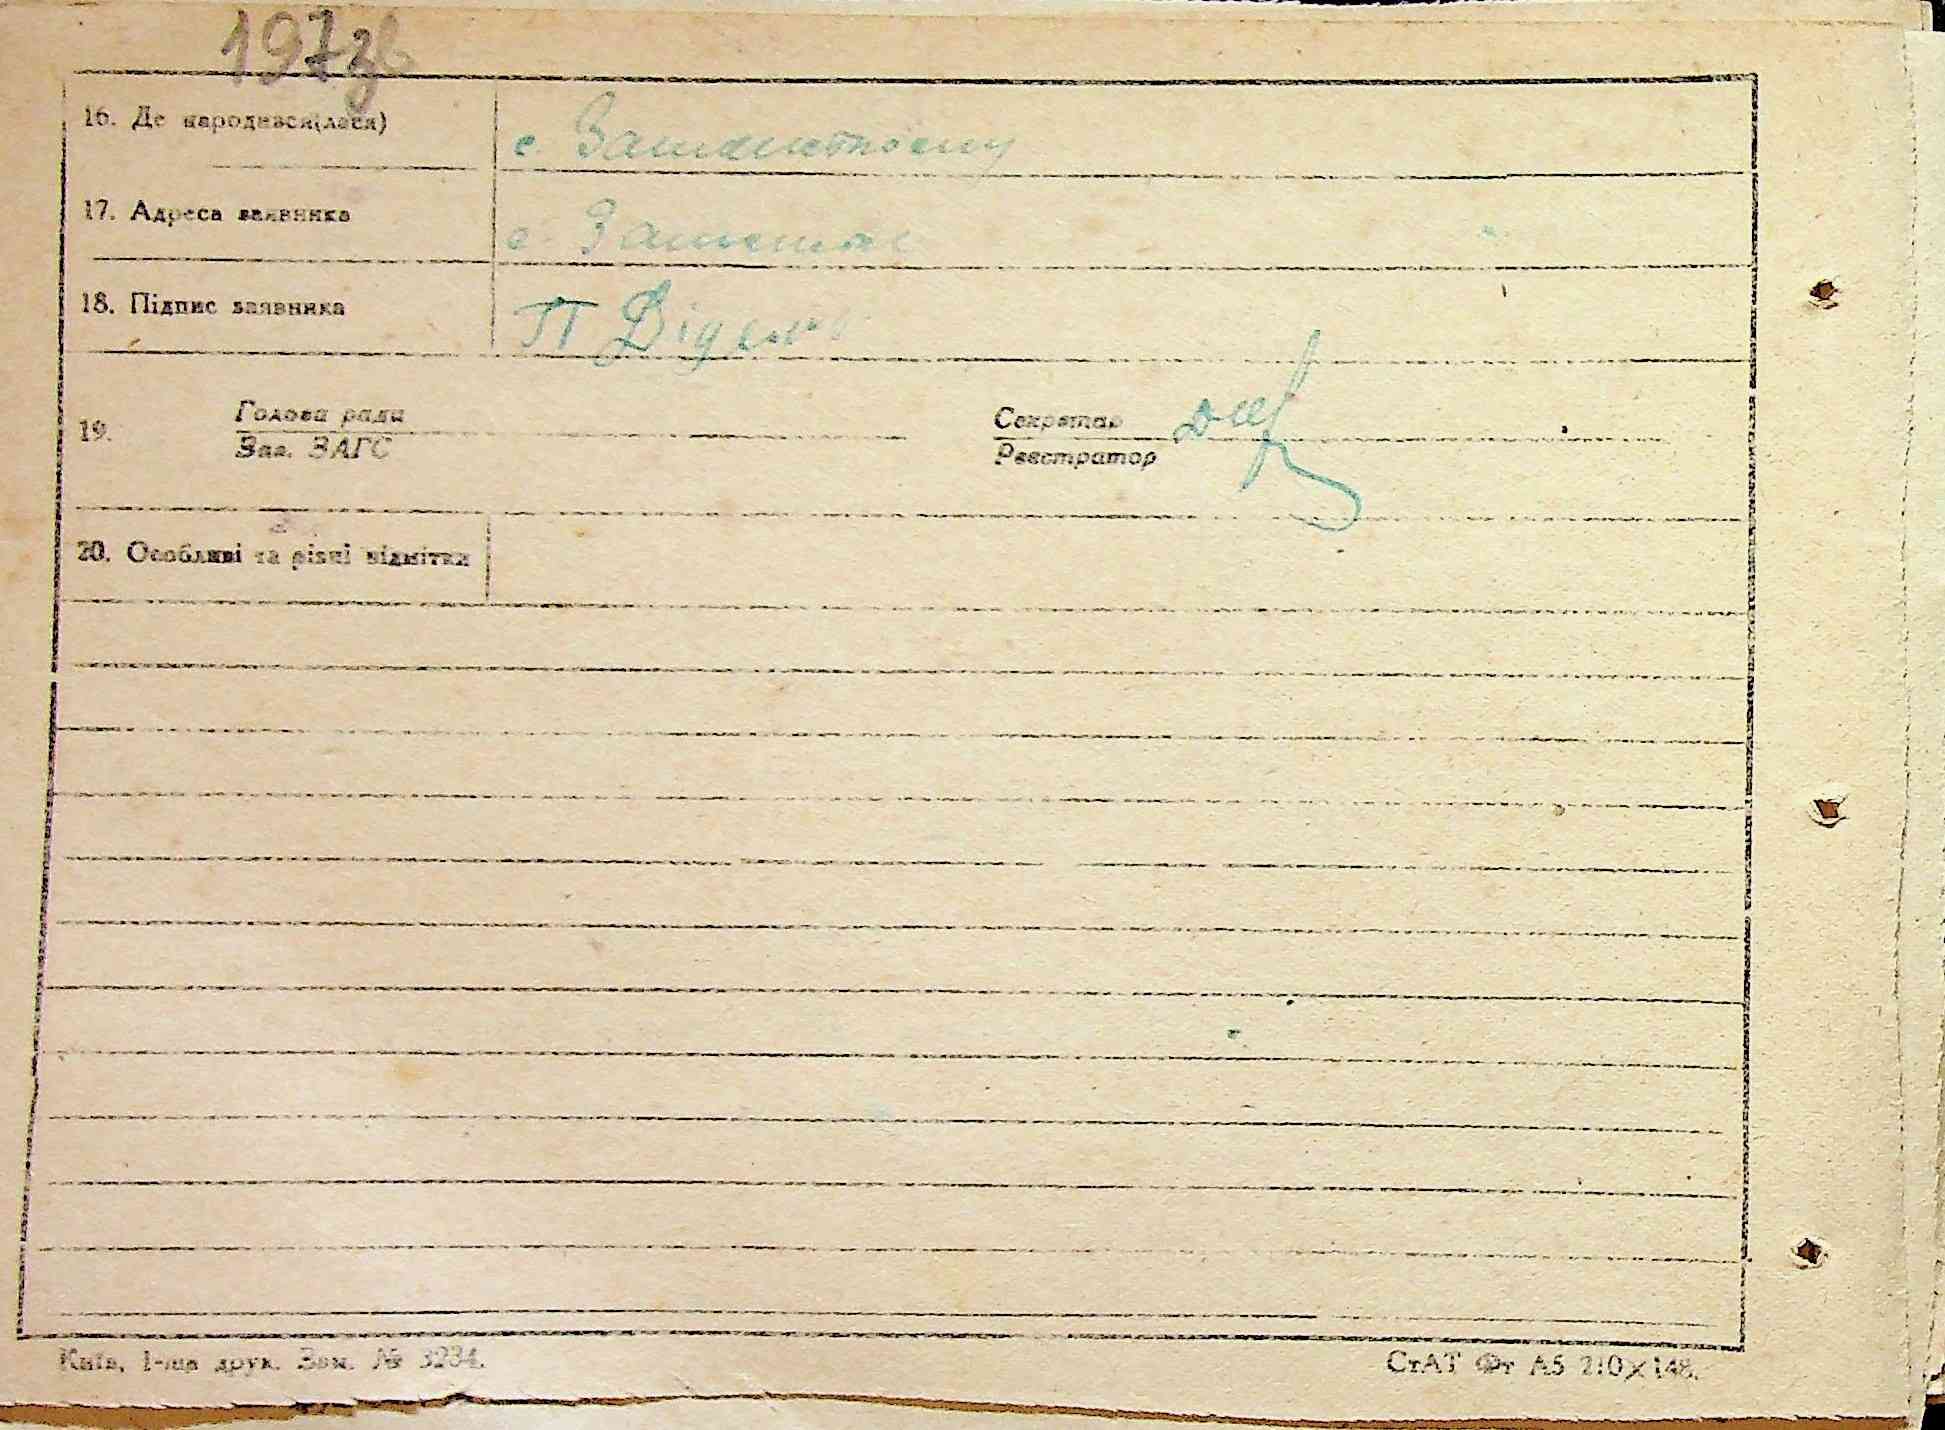 197зв
16. Де народився(лася)
с.
17. Адреса заявника
с.
18. Підпис заявника
П
19. Голова ради
Зав. ЗАГС
Секретар
Реєстратор
20. Особливі та різні відмітки
Київ, 1-ша друк. Зам. № 3234.
СтАТ Фт А5 210×148.